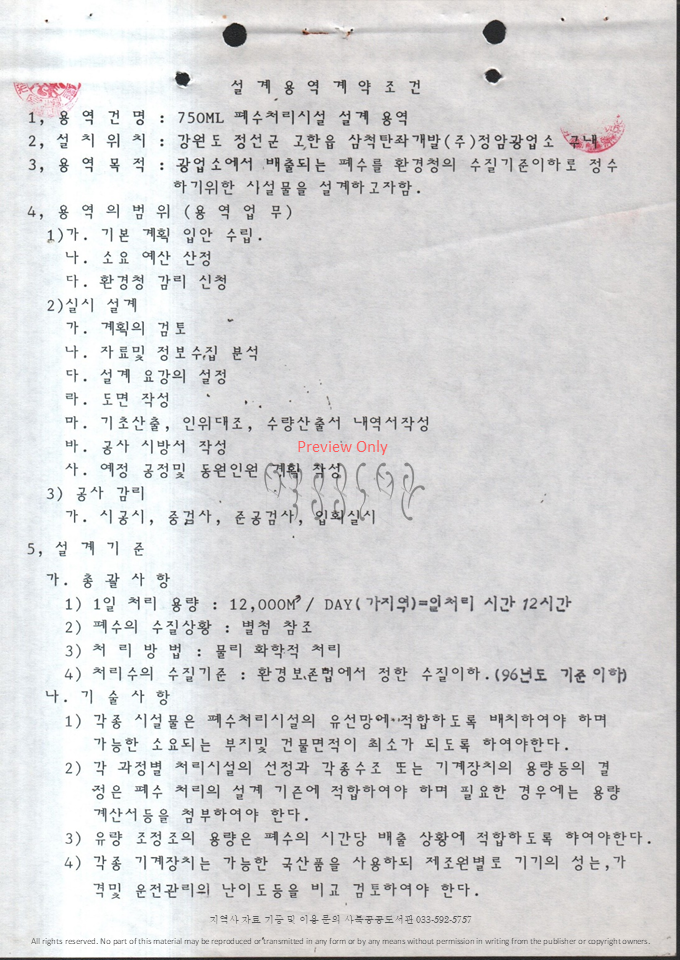 설계용역계약조건
1, 용 역 건 명 : 750ML 폐수처리시설 설계 용역
2, 설 치 위 치 : 강원도 정선군 고한읍 삼척탄좌개발(주)정암광업소 구내
3, 용 역 목 적 : 광업소에서 배출되는 폐수를 환경청의 수질기준이하로 정수
하기위한 시설물을 설계하고자함.
4, 용 역 의 범 위 (용 역 업 무)
1)가. 기본 계획 입안 수립.
나. 소요 예산 산정
다. 환경청 감리 신청
2)실시 설계
가. 계획의 검토
나. 자료및 정보수집 분석
다. 설계 요강의 설정
라. 도면 작성
마. 기초산출, 인위대조, 수량산출서 내역서작성
바. 공사 시방서 작성
Preview Only
사. 예정 공정및 동원인원 계획 작성
3) 공사 감리
가. 시공시, 중검사, 준공검사, 입회실시
5, 설 계 기 준
가. 총 괄 사 항
1) 1일 처리 용량 : 12,000M³/ DAY(가지역)=일처리 시간 12시간
2) 폐수의 수질상황 : 별첨 참조
3) 처 리 방 법 : 물리 화학적 처리
4) 처리수의 수질기준 : 환경보존법에서 정한 수질이하.(96년도 기준이하)
나. 기 술 사 항
1) 각종 시설물은 폐수처리시설의 유선망에 적합하도록 배치하여야 하며
가능한 소요되는 부지및 건물면적이 최소가 되도록 하여야한다.
2) 각 과정별 처리시설의 선정과 각종수조 또는 기계장치의 용량등의 결
정은 폐수 처리의 설계 기준에 적합하여야 하며 필요한 경우에는 용량
계산서등을 첨부하여야 한다.
3) 유량 조정조의 용량은 폐수의 시간당 배출 상황에 적합하도록 햐여야한다.
4) 각종 기계장치는 가능한 국산품을 사용하되 제조원별로 기기의 성는,가
격및 운전관리의 난이도등을 비교 검토하여야 한다.
지역사 자료 기증 및 이용 문의 사북공공도서관 033-592-5757
All rights reserved. No part of this material may be reproduced or transmitted in any form or by any means without permission in writing from the publisher or copyright owners.